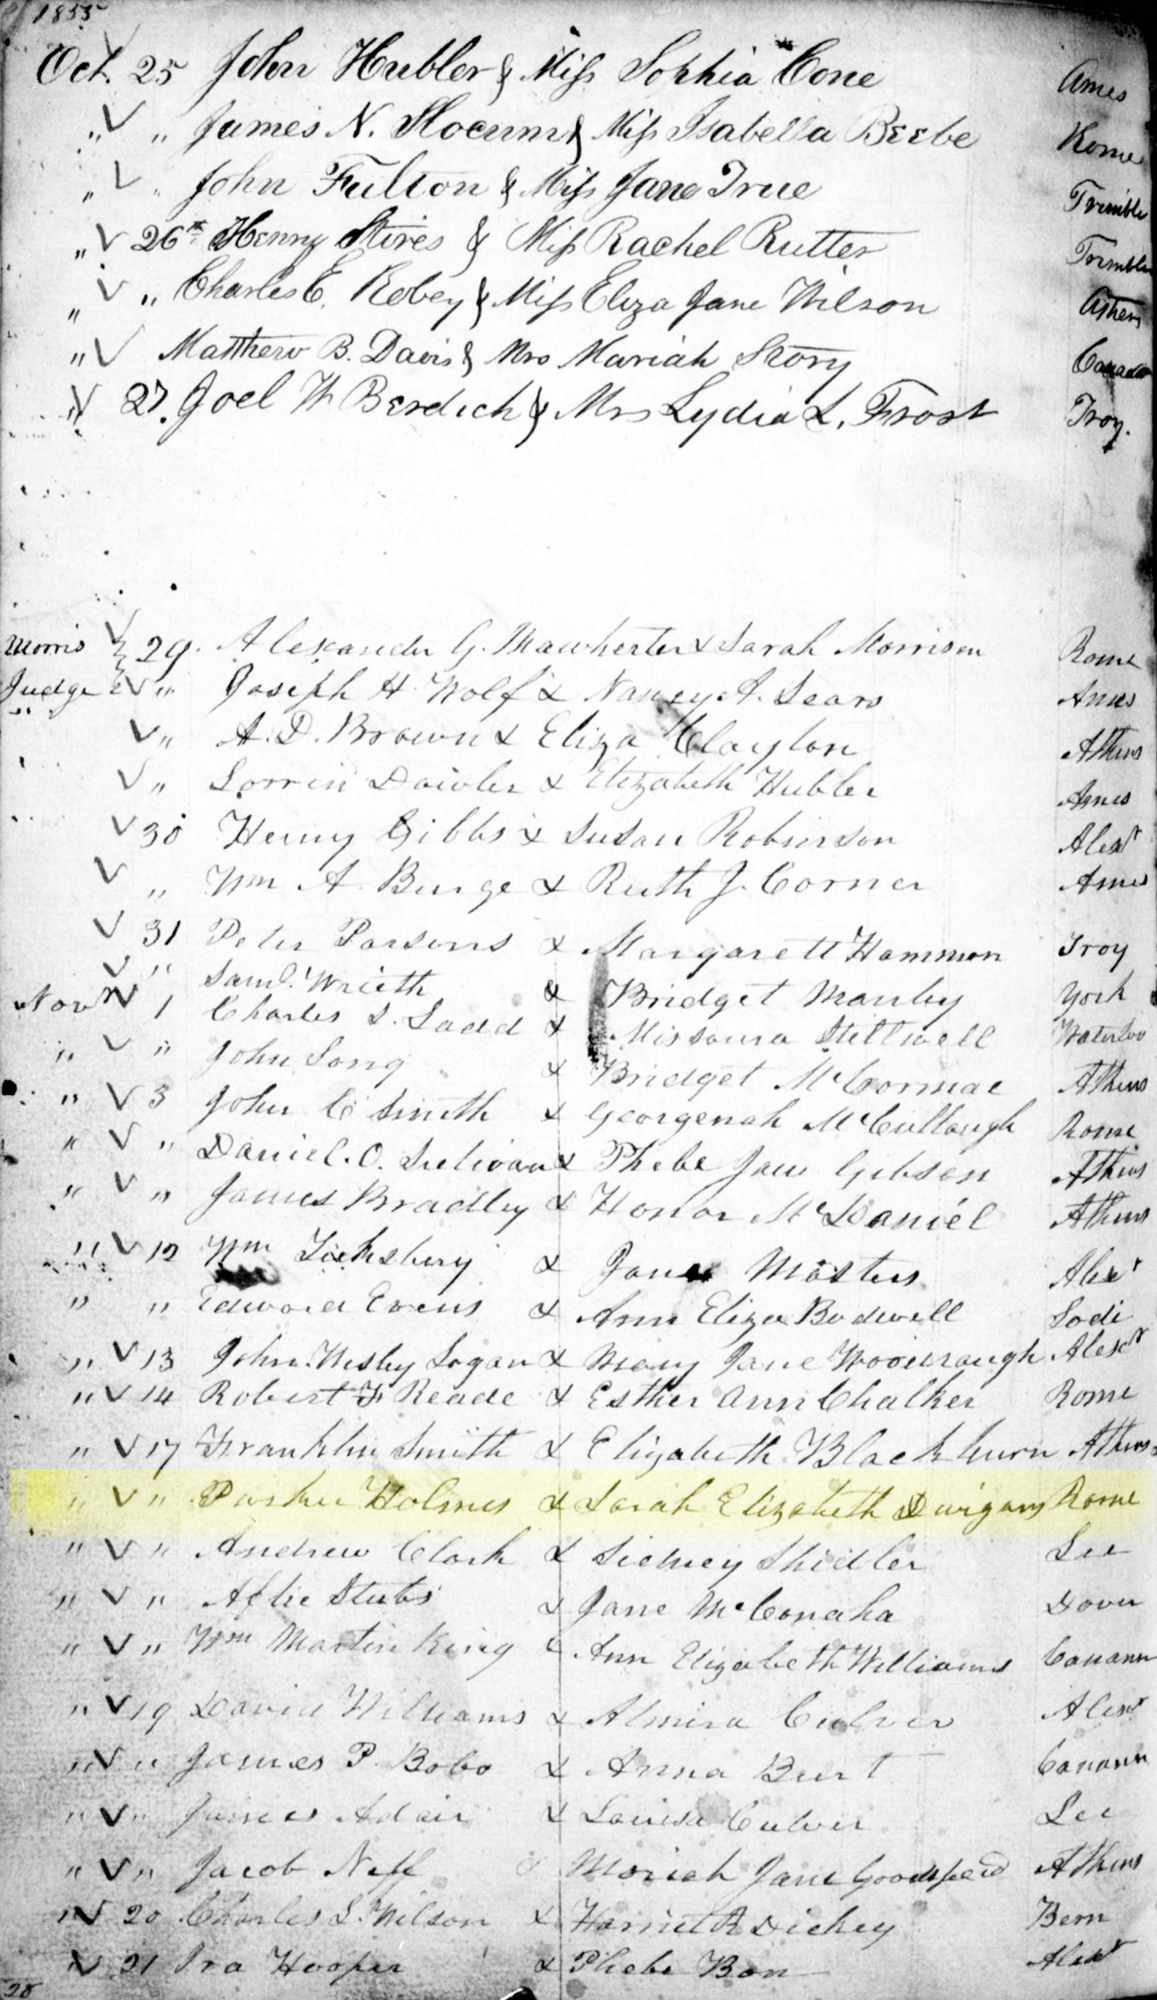 1855
Oct. 25 John Hubler & Miss Sophia Cone Ames
" " James N. Slocum & Miss Isabella Beebe Rome
" " John Fulton & Miss Jane True Trimble
" 26th Henry Stires & Miss Rachel Rutter Trimble
" " Charles E. Robey & Miss Eliza Jane Wilson Athens
" Matthew B. Davis & Mrs Mariah Story Canaan
" 27. Joel W Berdich & Mrs Lydia L. Frost Troy.
Morris 29. Alexander G. Mawherter & Sarah Morrison Rome
Judge " Joseph H. Wolf & Nancy A. Sears Ames
" A. D. Brown & Eliza Clayton Athens
" Lorrin Dowler & Elizabeth Hubler Ames
30 Henry Gibbs & Susan Robinson Alexr
" Wm A. Burge & Ruth J. Corner Ames
31 Peter Parsons & Margarett Hammon Troy
" Saml. Wrieth & Bridget Manley York
Nov 1 Charles S. Ladd & Missoura Stillwell Waterloo
" " John Song & Bridget McCormac Athens
" 3 John C Smith & Georgenah McCullough Rome
" " Daniel. O. Sulivan & Phebe Jane Gibson Athens
" " James Bradley & Honor McDaniel Athens
" 12 Wm Tewksbury & Jane Masters Alexr
" " Edward Evens & Ann Eliza Bodwell Lodi
" 13 John Wesley Logan & Mary Jane Alexr
" 14 Robert F Reade & Esther Ann Chalker Rome
" 17 Franklin Smith & Elizabeth Blackburn Athens
" " Parker Holmes & Sarah Elizabeth Dwigans Rome
" " Andrew Clark & Sidney Shidler Lee
" " Stubs & Jane McConaha Dover
" " Wm Martin King & Ann Elizabeth Williams Canaan
" 19 David Williams & Almira Culver Alexr
" " James P. Bobo & Anna Burt Canaan
" " James Adair & Louisa Culver Lee
" " Jacob Neff & Moriah Jane Goodspeed Athens
" 20 Charles S. Wilson & Harriet R Dickey Bern
" 21 Ira Hooper & Phebe Bon Alexr
28